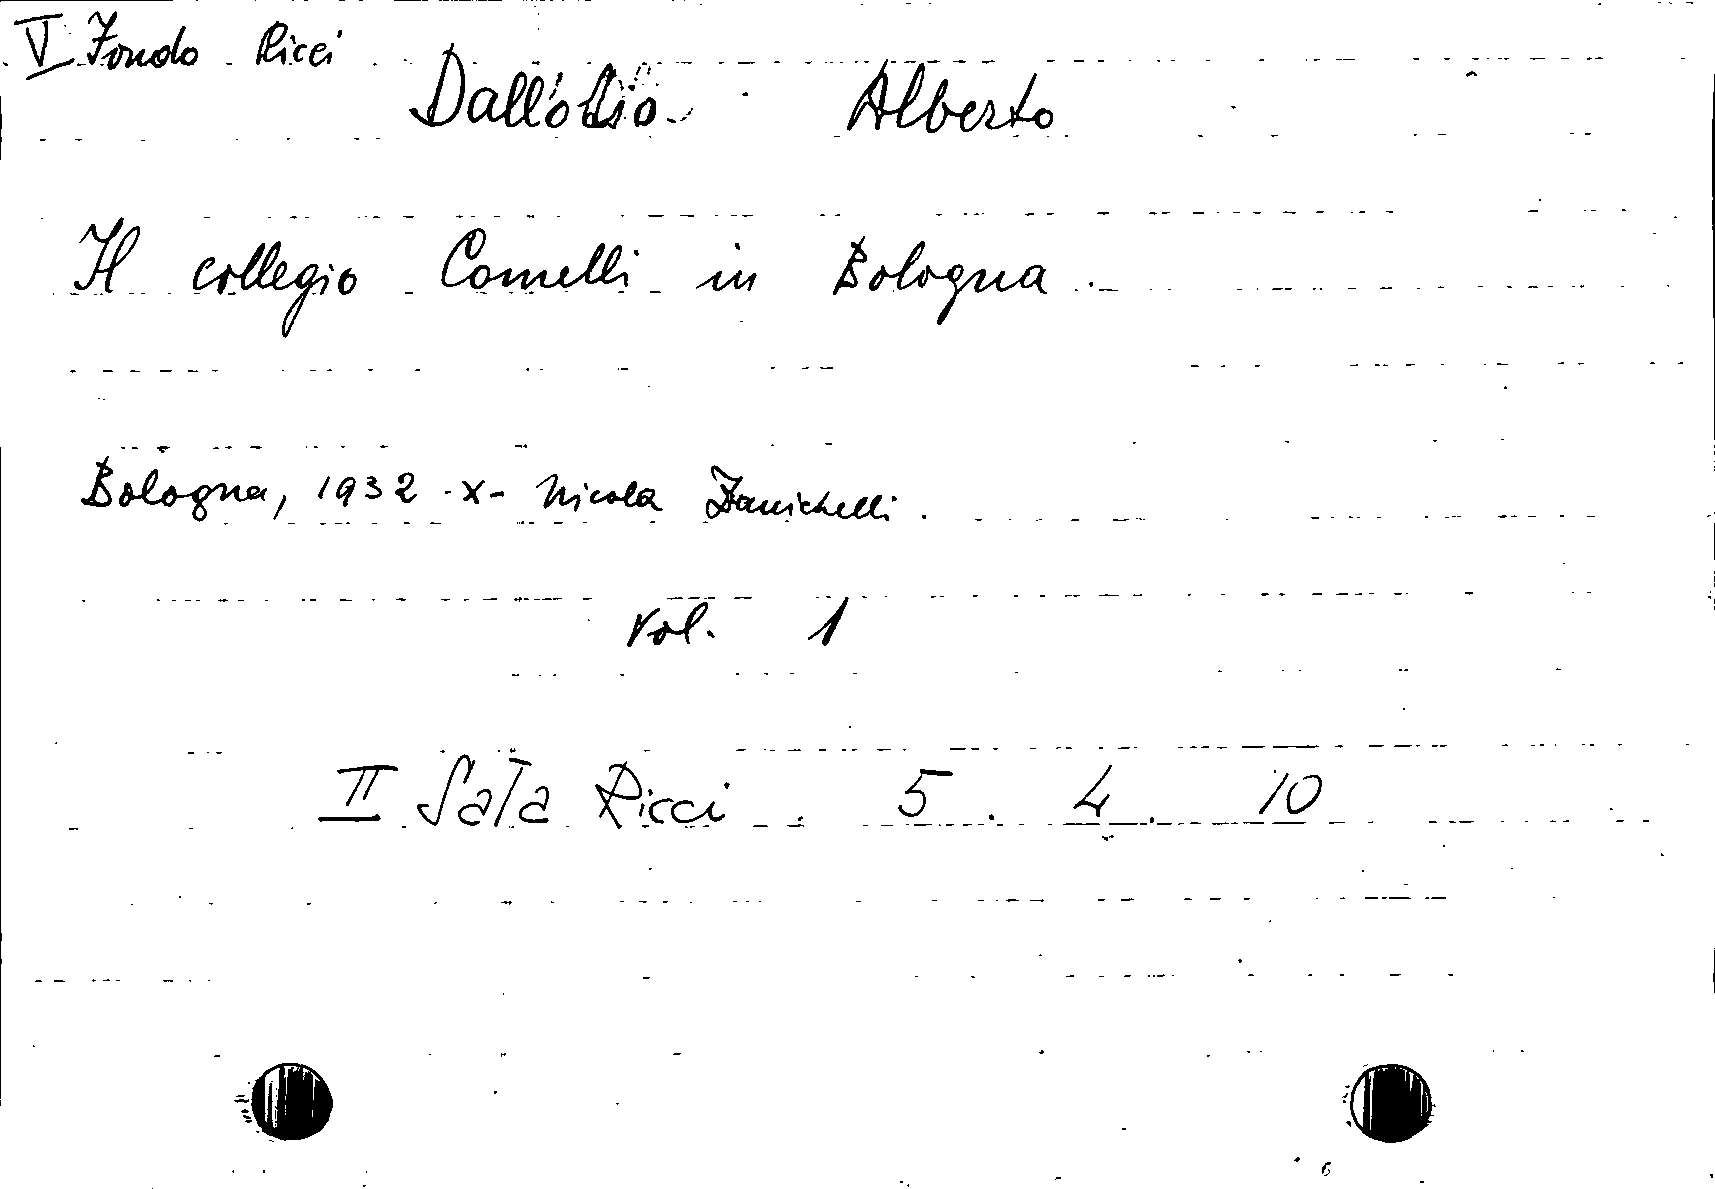 V Fondo Ricci
Dall'olio Alberto
Il collegio Comelli in Bologna.
Bologna, 1932 -X- Nicola Zanichelli.
Vol. 1
II Sala Ricci. 5. 4. 10